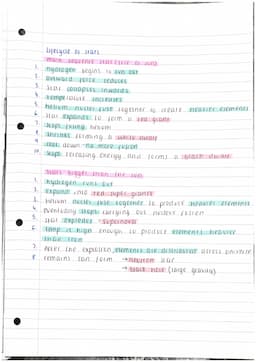 Lifecycle of stars
Main sequence stars (size of sun)
1. hydrogen begins to run out
2. outward force reduces
3. star collapses inwards
4. temperature increases
5. helium nuclei fuse together to create heavier elements
6. star expands to form a red giant
7. stops fusing helium
8. shrinks forming a white dwarf
9. cools down no more fusion
10. stops releasing energy and forms a black dwarf
stars bigger than the sun
1. hydrogen runs out
2. expand into red super giants
3. helium nuclei fuse together to produce heavier elements
4. eventually stops carrying out nuclear fusion
5. star explodes - supernova
6. temp is high enough to produce elements heavier
than iron
7. after the explosion, elements are distributed across universe
8. remains can form → neutron star
→ black hole (large gravity)